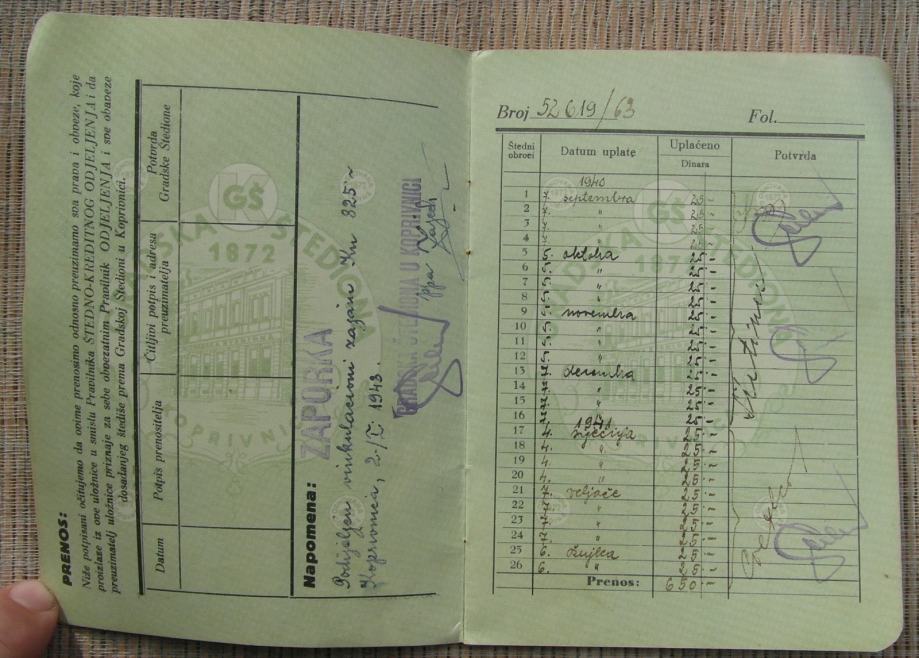 PRENOS:
Niže potpisani očitujemo da ovime prenosimo odnosno preuzimamo sva prava i obveze, koje
proizlaze iz ove uložnice u smislu Pravilnika ŠTEDNO-KREDITNOG ODJELJENJA i da
preuzimatelj uložnice priznaje za sebe obvezatnim Pravilnik ODJELJENJA i sve obaveze
dosadanjeg štediše prema Gradskoj Štedioni u Koprivnici.
Datum
Potpis prenositelja
Čitljivi potpis i adresa preuzimatelja
Potvrda Gradske Štedione
GŠ
GRADSKA ŠTEDIONA
1872
KOPRIVNICA
Napomena:
ZAPORKA
Podijeljen vinkulacioni zajam Kn 825~
Koprivnica, 2./I. 1943.
GRADSKA ŠTEDIONA U KOPRIVNICI
ppa
Broj 52619/63
Fol.
Štedni obroci
Datum uplate
Uplaćeno
Dinara
Potvrda
GŠ
1872
KOPRIVNICA
1940
1 7. septembra 25.-
2 7. " 25.-
3 7. " 25.-
4 7. " 25.-
5 5. oktobra 25.-
6 5. " 25.-
7 5. " 25.-
8 5. " 25.-
9 5. novembra 25.-
10 5. " 25.-
11 5. " 25.-
12 5. " 25.-
13 7. decembra 25.-
14 7. " 25.-
15 7. " 25.-
16 7. " 25.-
1941
17 4. siječnja 25.-
18 4. " 25.-
19 4. " 25.-
20 4. " 25.-
21 7. veljače 25.-
22 7. " 25.-
23 7. " 25.-
24 7. " 25.-
25 6. ožujka 25.-
26 6. " 25.-
Prenos: 650.-